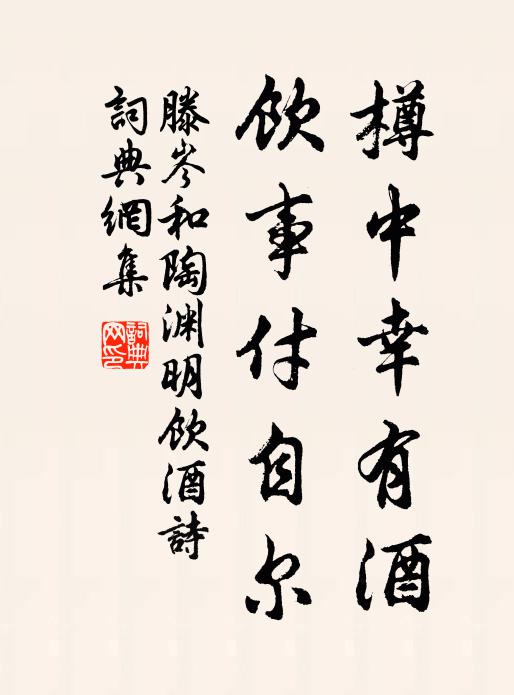 樽中幸有酒
飲事付自尔
滕岑和陶渊明飲酒詩
詞典網集
詞典网印